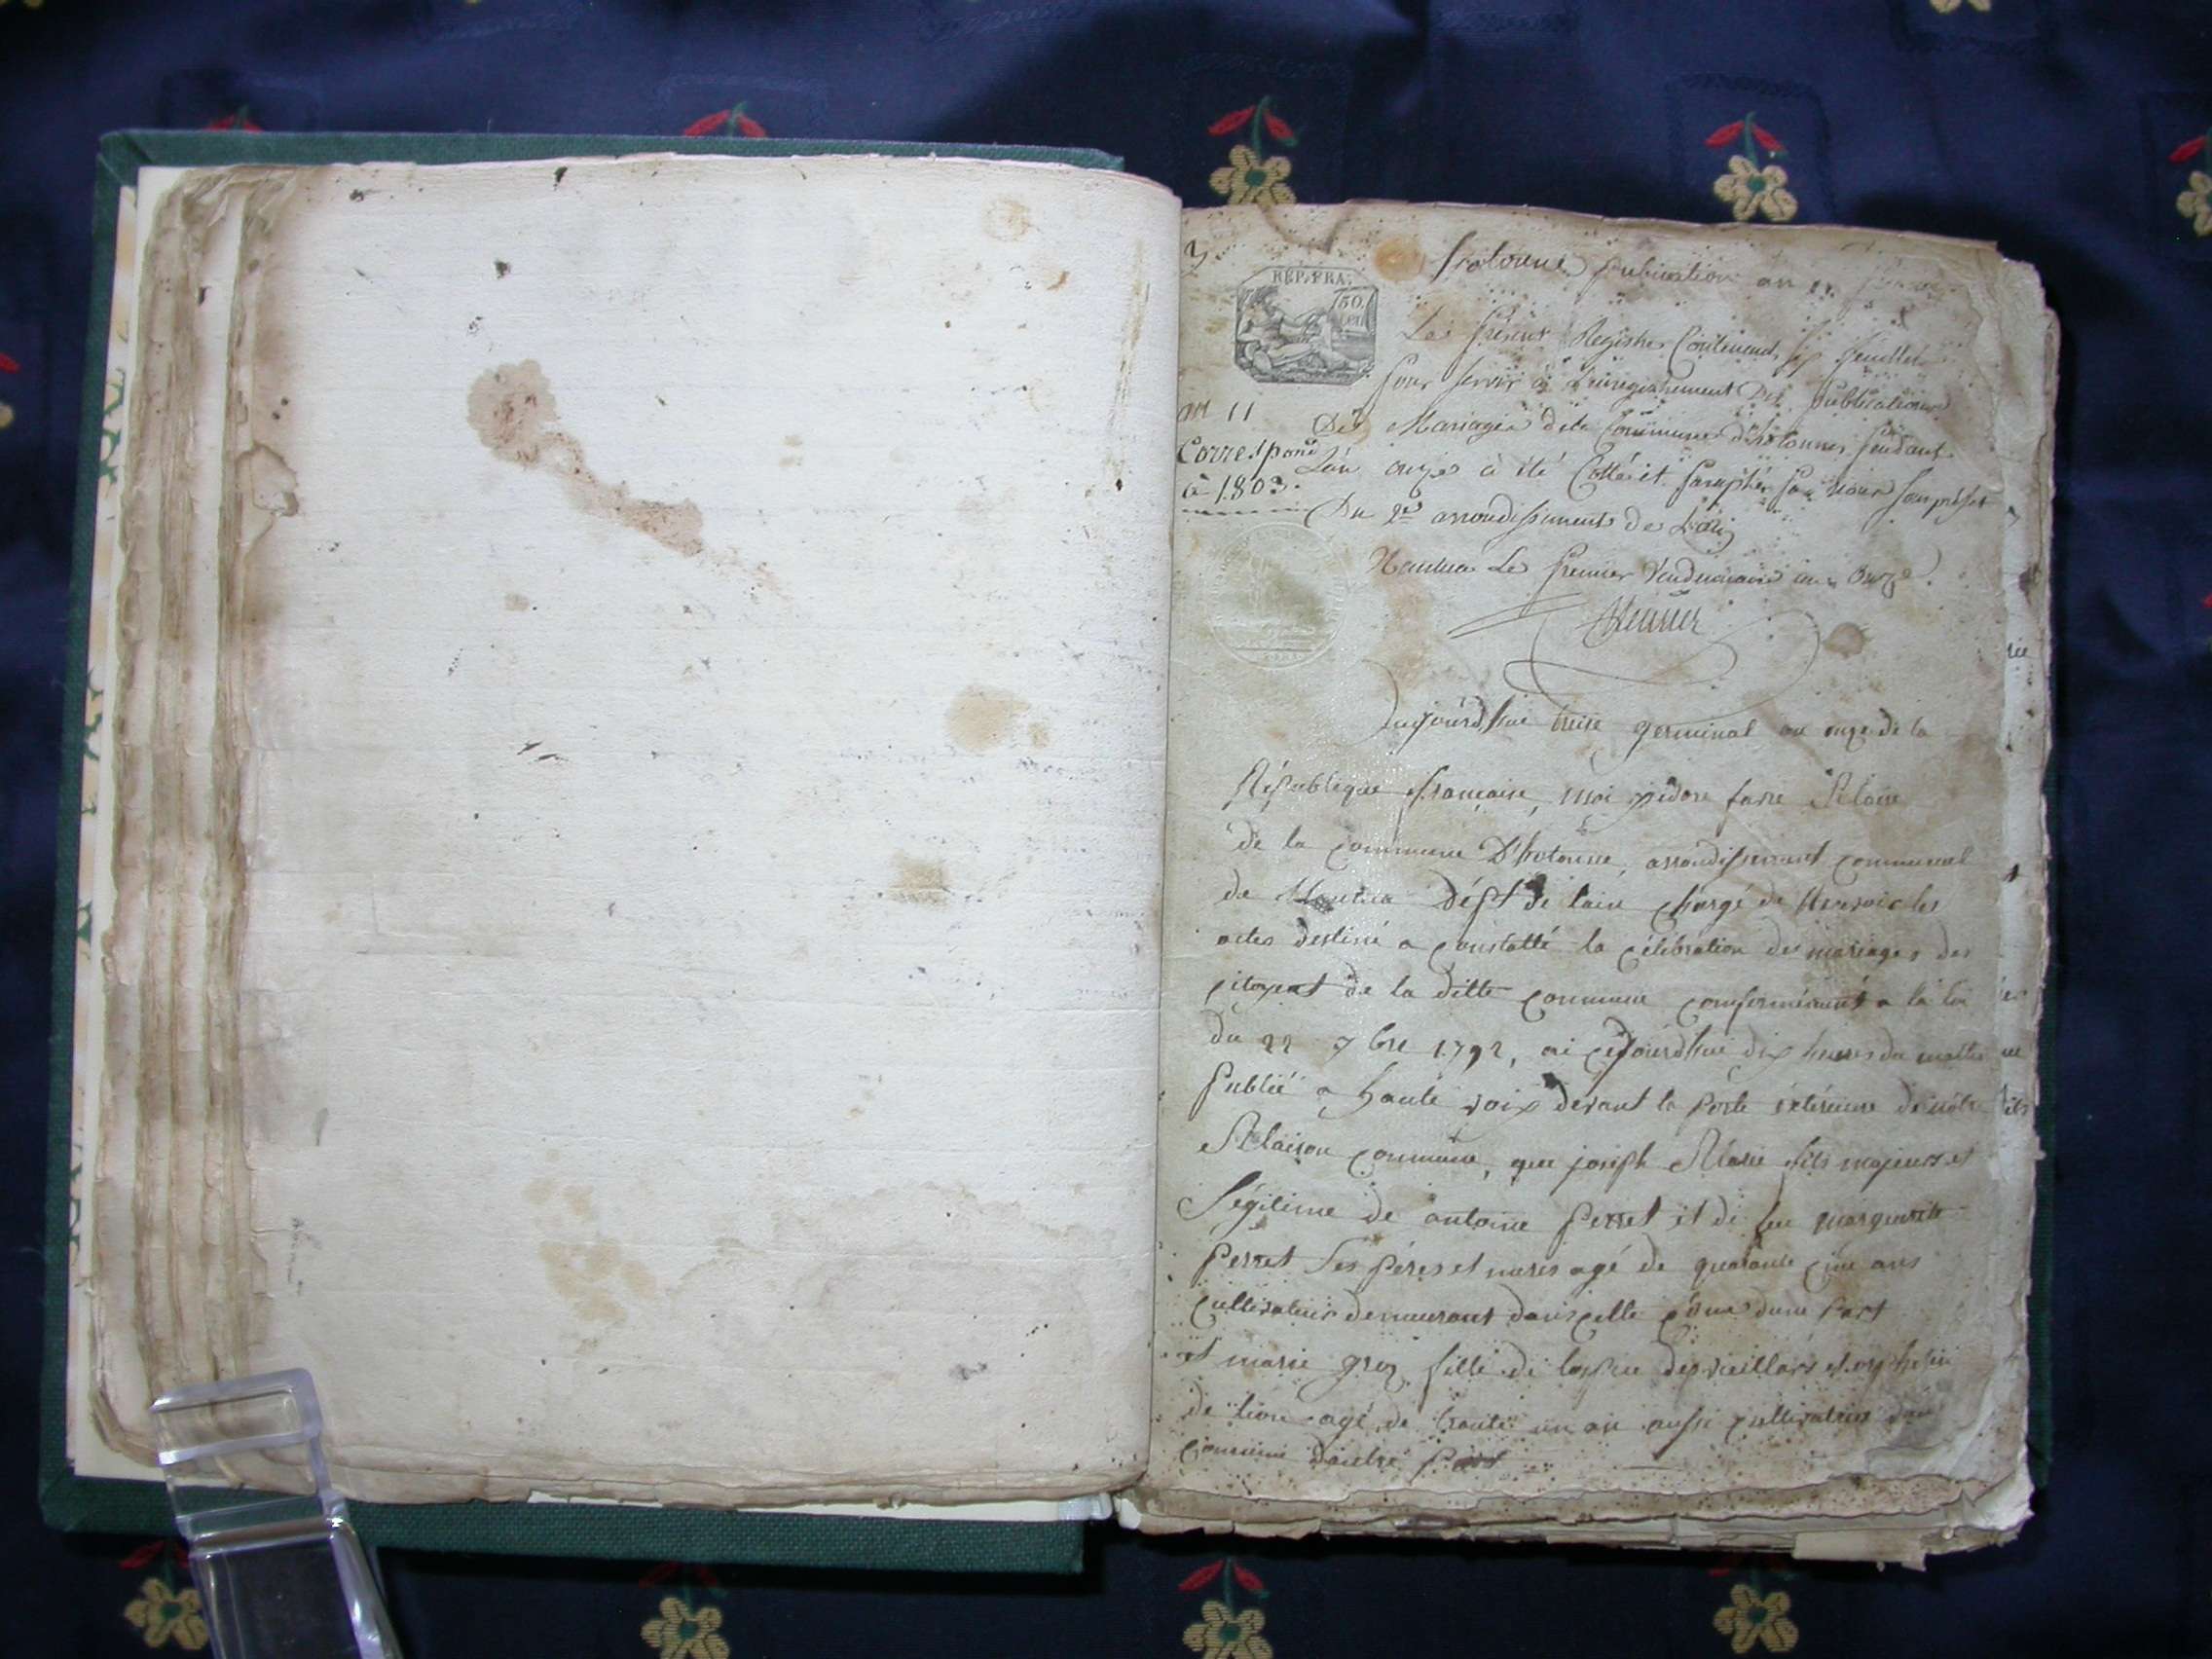 3
hotonne publication an 11
REP. FRA.
50.
CEN.
Le présent Registre Contenant six feuillets
pour servir à L'enregistrement Des publications
an 11
Des Mariages de la Commune d'hotonnes pendant
Correspond
L'an onze a été Cotté et paraphé par nous sous préfet
à 1803.
Du 2e arrondissement de L'ain
Nantua Le premier Vendemiaire an onze.
aujourdhui treize germinal an onze de la
République française, moi isidore favre Maire
de la commune D'hotonne, arrondissement communal
de Nantua Dépt de lain chargé de recevoir les
actes destiné a constatté la célébration des mariages des
citoyens de la ditte commune conformément a la loi
du 22 7bre 1792, ai cejourdhui dix heures du mattin
publié a haute voix devant la porte extérieure de notre
Maison commune, que joseph Marie fils majeurs et
légitime de antoine perret et de feu marguerite
perret ses péres et meres agé de quarante cinq ans
cultivateur demeurant dans cette cõne dune part
et marie gros fille de lospice des vieillars et orphelin
de lion agé de trante un an aussi cultivatrice
commune dautre part